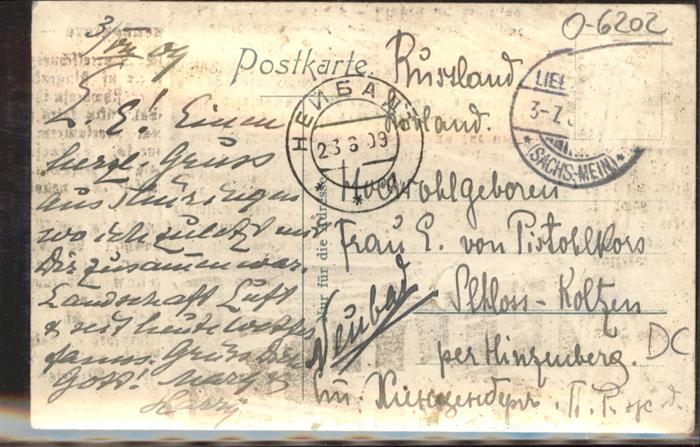 O-6202
3/VII 09
Postkarte.
Russland
Livland.
НЕЙБАД
23 6 09
LIE
3-7.
* (SACHS-MEIN) *
L. E! Einen
herzl. Gruss
aus Thüringen
wo ich zuletzt mit
Dir zusammen war.
Landschaft, Luft
& seit heute Wetter
famos. Grüss Dich
Gott! Mary &
Harry
Nur für die Adresse
Hochwohlgeboren
Frau E. von Pistohlkors
Schloss-Koltzen
per Hinzenberg.
Neubad
DC
ст. Хинценбергъ. П. Р. ж. д.